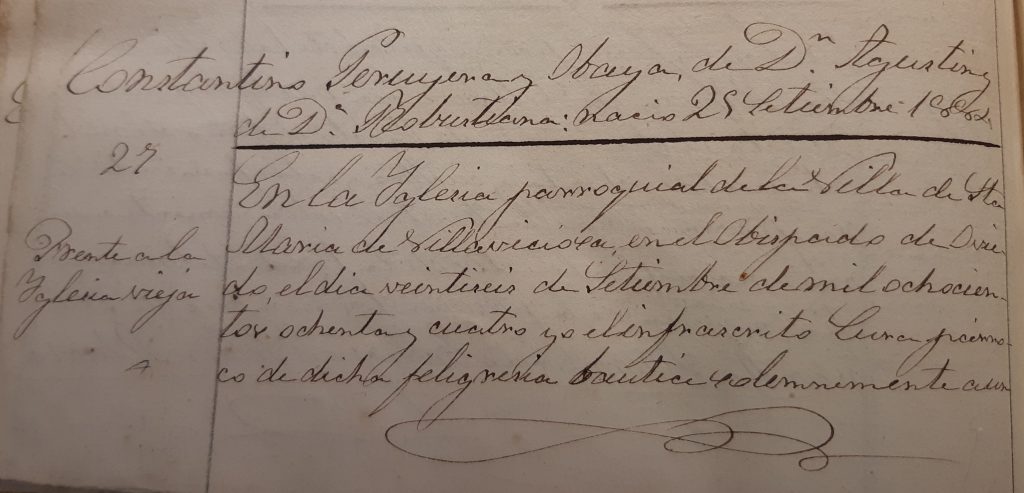 Constantino Peruyera y Obaya, de Dn. Agustin y
de Da. Robustiana: nacio 25 Setiembre 1884
27
En la Yglesia parroquial de la Villa de Sta
Maria de Villaviciosa, en el Obispado de Ovie-
do, el dia veintiseis de Setiembre de mil ochocien-
tos ochenta y cuatro yo el infrascrito Cura párro-
co de dicha feligresia bauticé solemnemente a un
Frente a la
Yglesia vieja